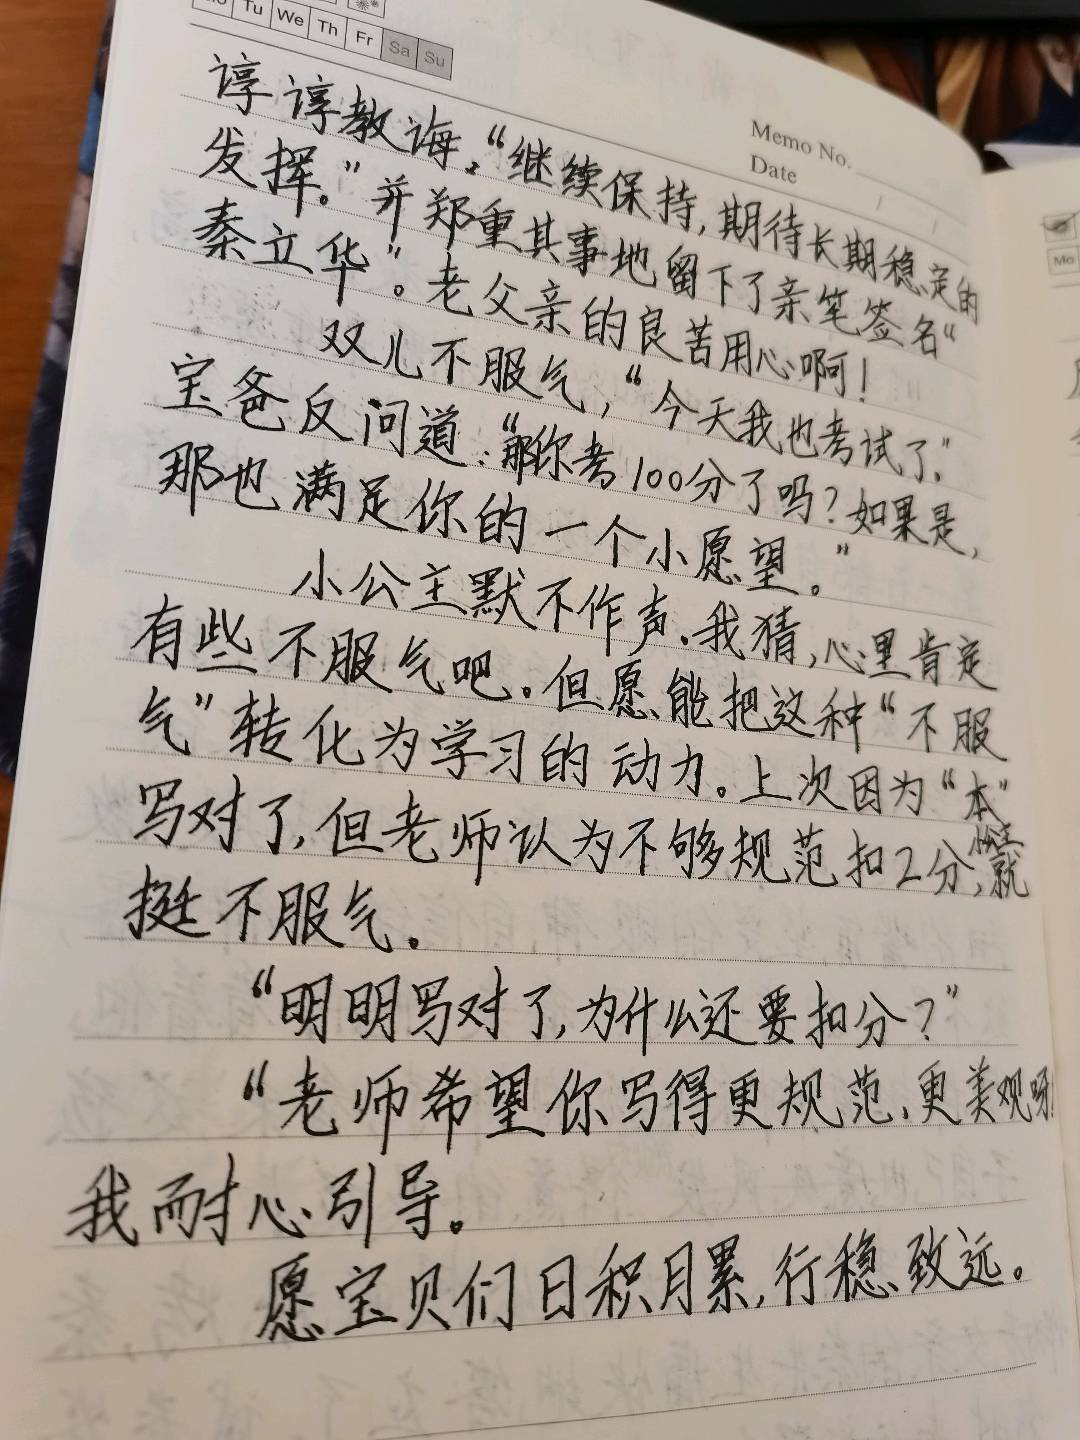 Tu We Th Fr Sa Su
Memo No.
Date
谆谆教诲,“继续保持,期待长期稳定的
发挥。”并郑重其事地留下了亲笔签名“
秦立华”。老父亲的良苦用心啊!
双儿不服气,“今天我也考试了。”
宝爸反问道:“那你考100分了吗?如果是,
那也满足你的一个小愿望。”
小公主默不作声.我猜,心里肯定
有些不服气吧。但愿能把这种“不服
气”转化为学习的动力。上次因为“本”
写对了,但老师认为不够规范扣2分,就
挺不服气。
“明明写对了,为什么还要扣分?”
“老师希望你写得更规范,更美观呀!
我耐心引导。
愿宝贝们日积月累,行稳致远。
Mo